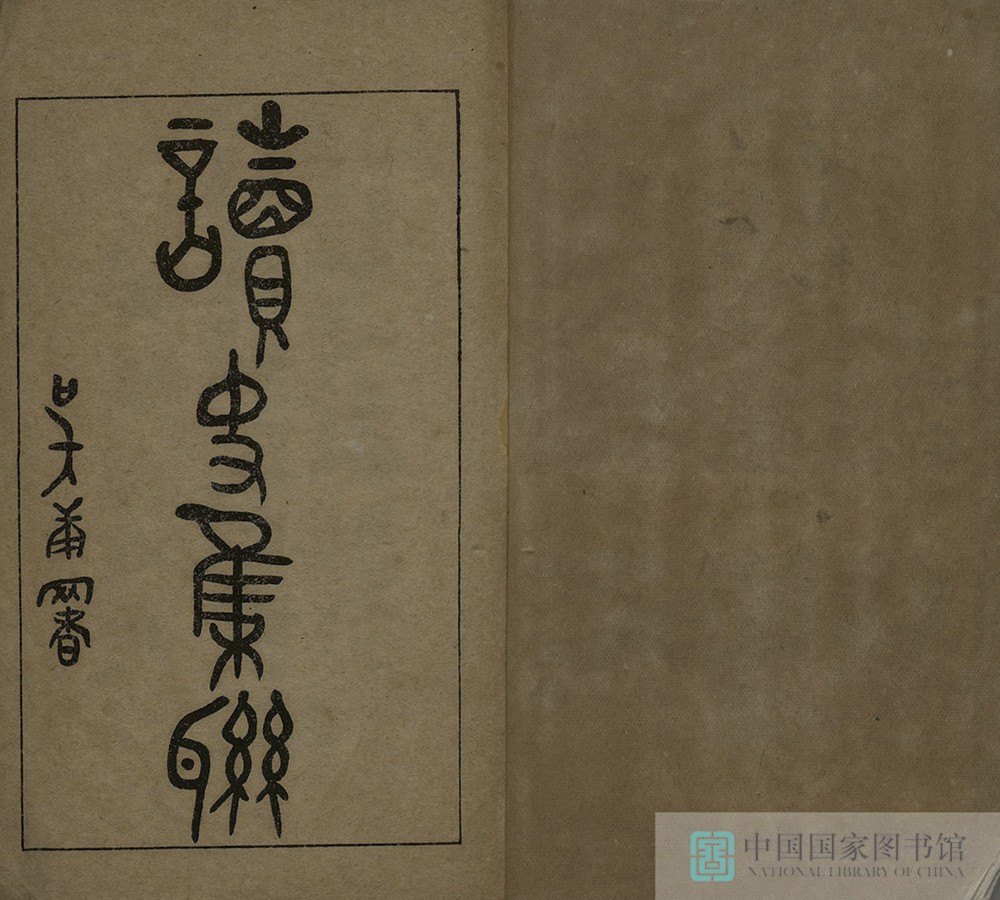 讀史集聯
吳署
中国国家图书馆
NATIONAL LIBRARY OF CHINA